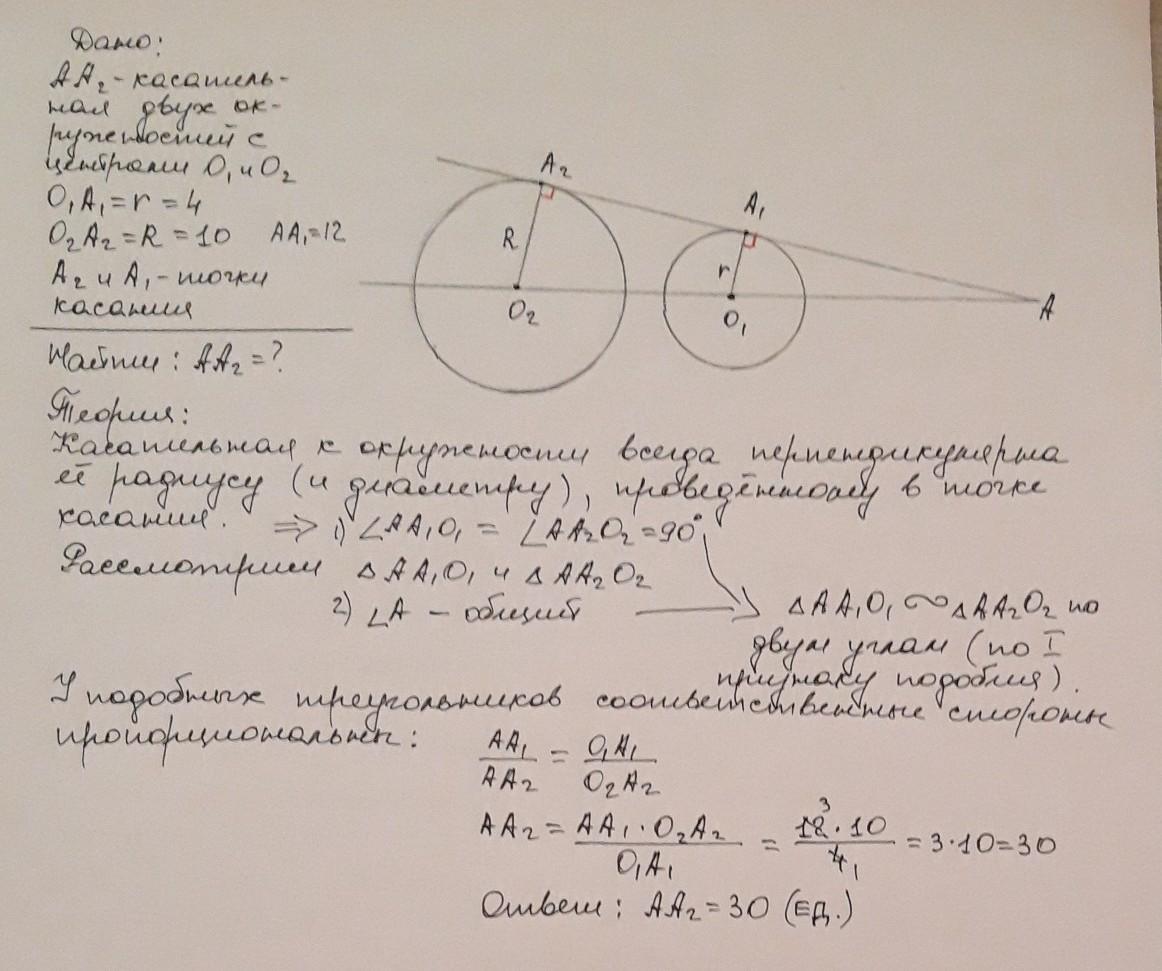 Дано:
AA₂ - касатель-
ная двух ок-
ружностей с
центрами O₁ и O₂
O₁A₁ = r = 4
O₂A₂ = R = 10 AA₁=12
A₂ и A₁ - точки
касания
Найти: AA₂ = ?
A₂
A₁
R
r
O₂
O₁
A
Теория:
Касательная к окружности всегда перпендикулярна
её радиусу (и диаметру), проведённому в точке
касания. ⇒ 1) ∠AA₁O₁ = ∠AA₂O₂ = 90°
Рассмотрим △AA₁O₁ и △AA₂O₂
2) ∠A - общий
△AA₁O₁ ∾ △AA₂O₂ по
двум углам (по I
признаку подобия).
У подобных треугольников соответственные стороны
пропорциональны:
AA₁/AA₂ = O₁A₁/O₂A₂
AA₂ = AA₁·O₂A₂/O₁A₁ = 12³·10/4₁ = 3·10=30
Ответ: AA₂ = 30 (ед.)